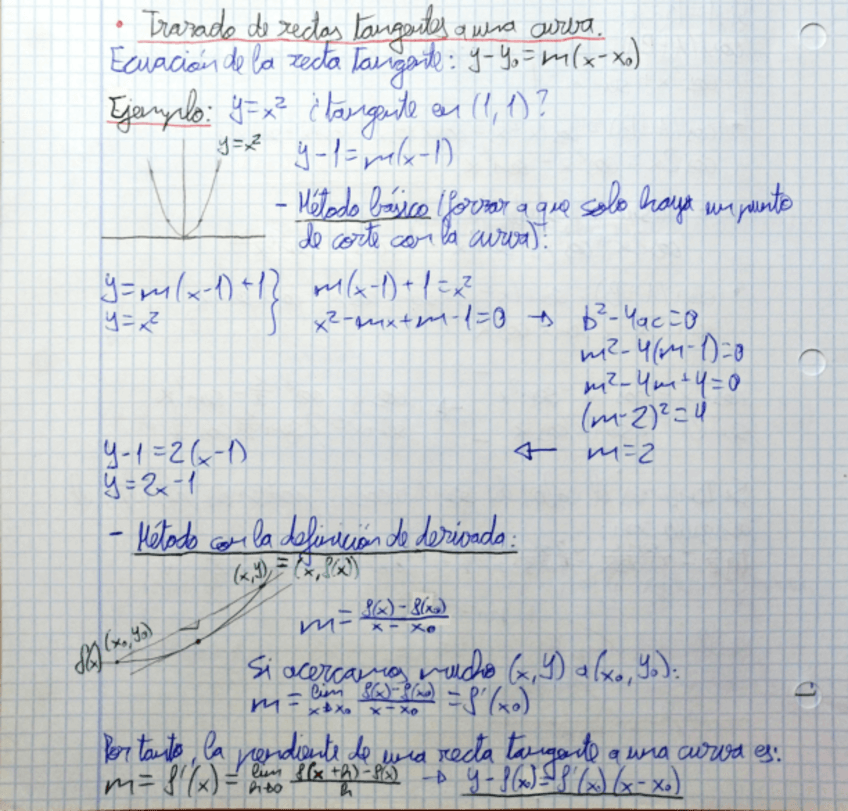 • Trazado de rectas tangentes a una curva.
Ecuación de la recta tangente: y-y₀=m(x-x₀)
Ejemplo: y=x² ¿tangente en (1,1)?
y=x²
y-1=m(x-1)
- Método básico (forzar a que solo haya un punto
de corte con la curva):
y=m(x-1)+1} m(x-1)+1=x²
y=x² x²-mx+m-1=0 → b²-4ac=0
m²-4(m-1)=0
m²-4m+4=0
(m-2)²=4
y-1=2(x-1) ← m=2
y=2x-1
- Método con la definición de derivada:
(x,y) = (x, f(x))
(x₀,y₀)
f(x)
m = f(x)-f(x₀) / x-x₀
Si acercamos mucho (x,y) a (x₀,y₀):
m = lim x→x₀ f(x)-f(x₀) / x-x₀ = f'(x₀)
Por tanto, la pendiente de una recta tangente a una curva es:
m = f'(x) = lim h→0 f(x+h)-f(x) / h → y-f(x₀)=f'(x₀)(x-x₀)